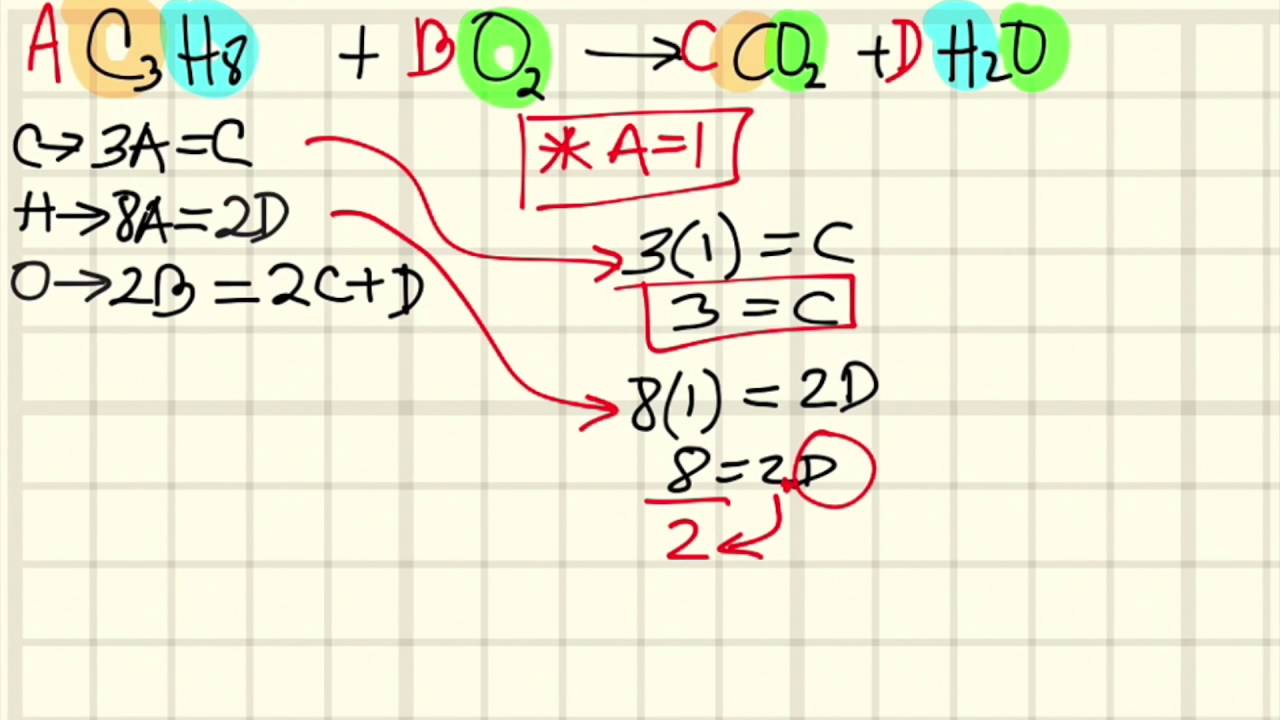 A C₃H₈ + B O₂ → C CO₂ + D H₂O
C→ 3A = C
* A = 1
H→ 8A = 2D
O→ 2B = 2C+D
3(1) = C
3 = C
8(1) = 2D
8 = 2D
2